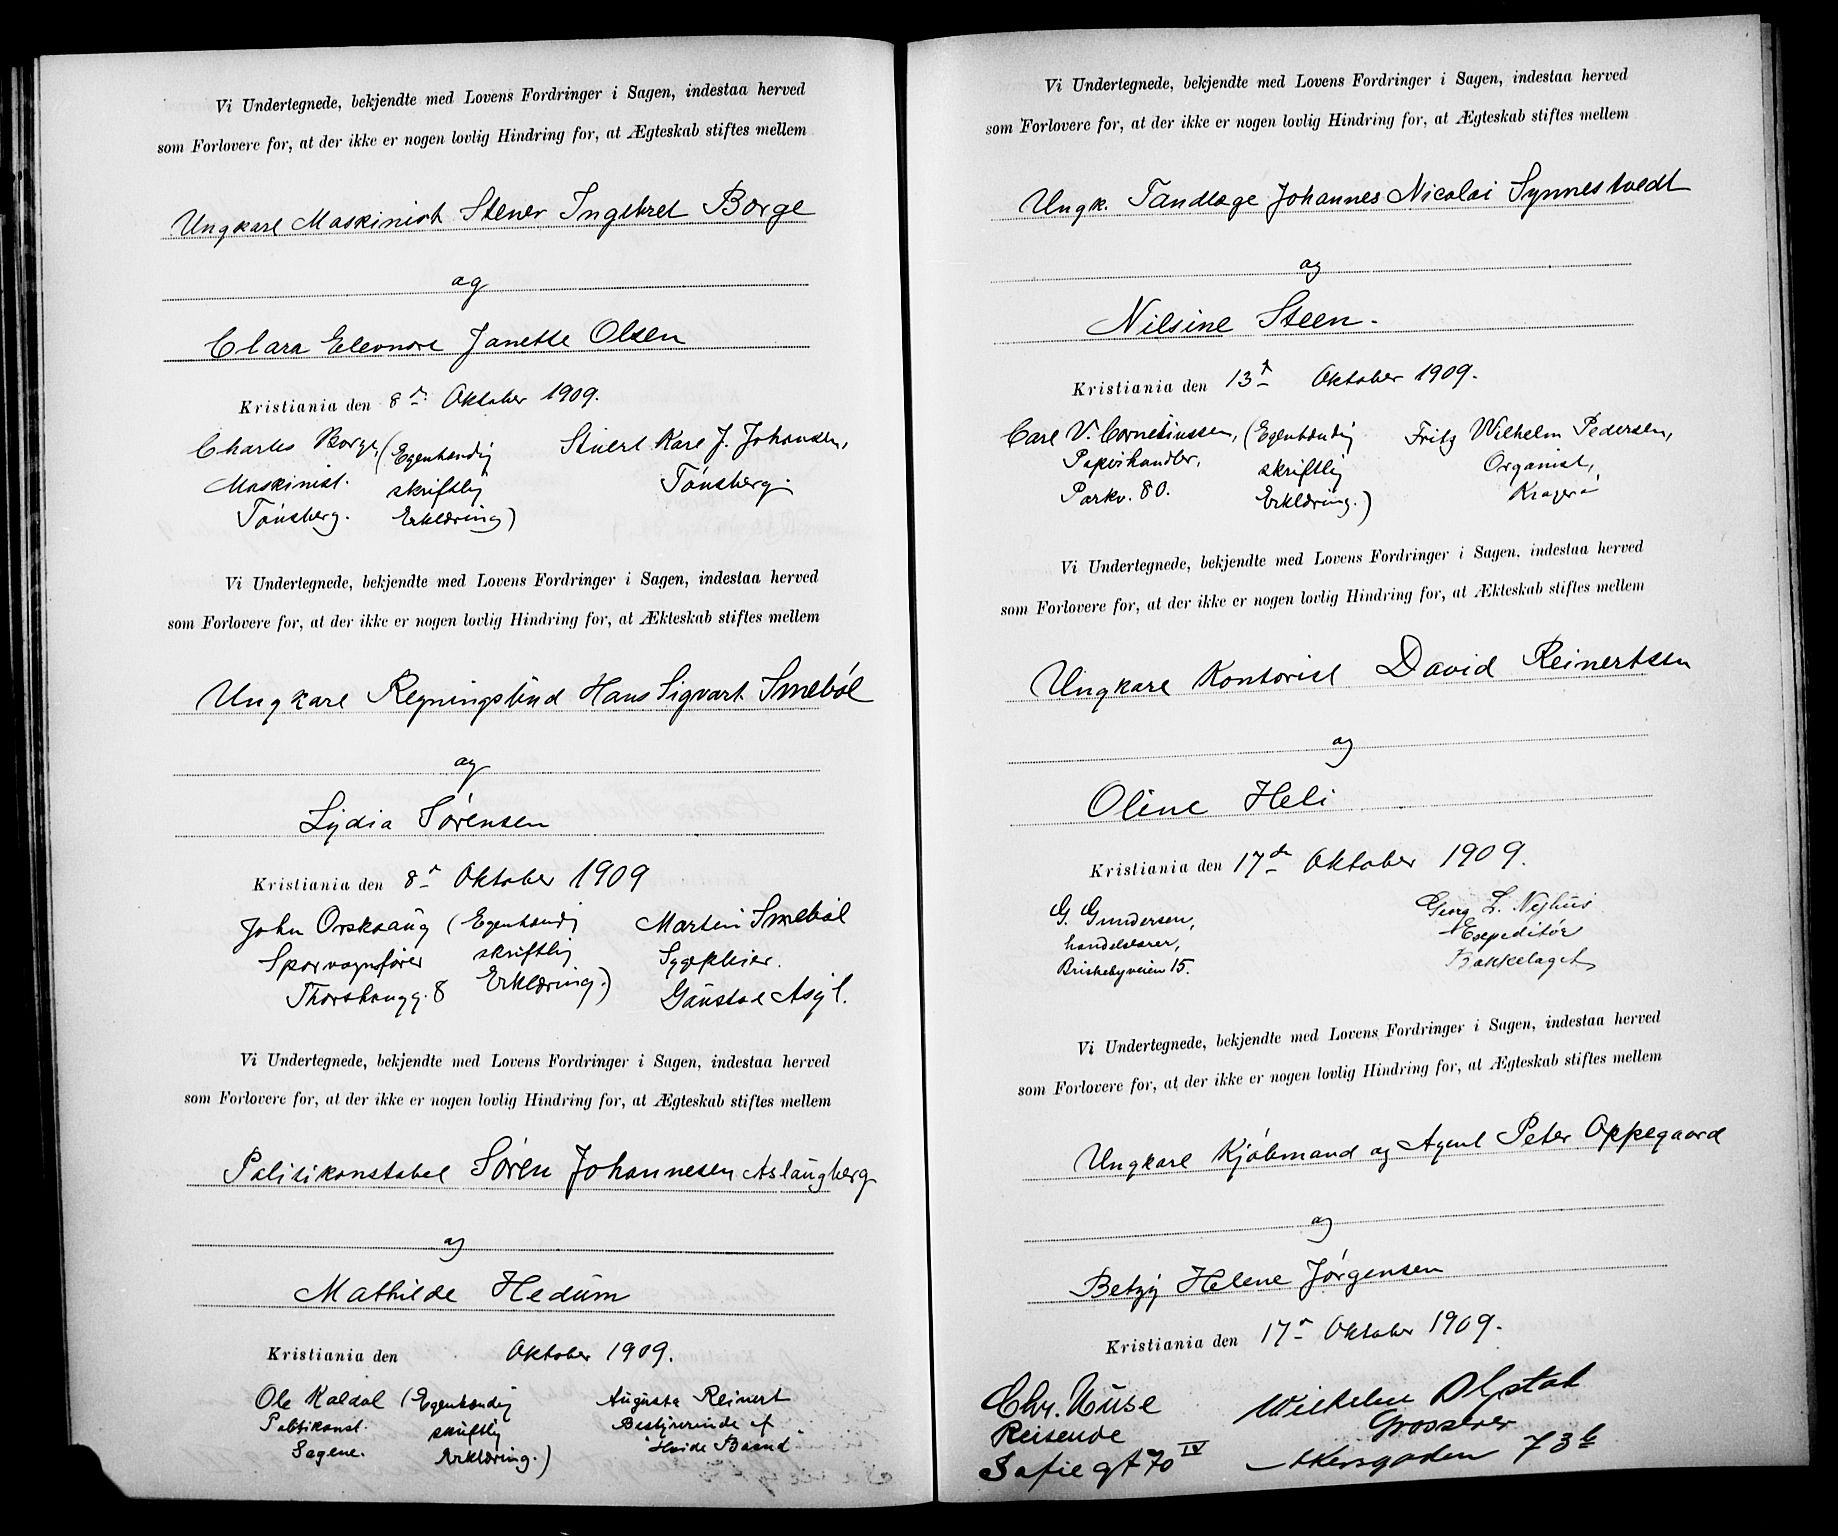 Vi Undertegnede, bekjendte med Lovens Fordringer i Sagen, indestaa herved
som Forlovere for, at der ikke er nogen lovlig Hindring for, at Ægteskab stiftes mellem
Ungkarl Maskinist Stener Ingebret Borge
og
Clara Eleonore Janette Olsen
Kristiania den 8de Oktober 1909.
Charles Borge (Egenhændig Karl J. Johansen,
Maskinist. skriftlig Tönsberg.
Tönsberg. Erklæring)
Vi Undertegnede, bekjendte med Lovens Fordringer i Sagen, indestaa herved
som Forlovere for, at der ikke er nogen lovlig Hindring for, at Ækteskab stiftes mellem
Ungkarl Hans Sigvart Smeböl
og
Lydia Sørensen
Kristiania den 8de Oktober 1909
John Orskaaug (Egenhændig Martin Smeböl
Sporvognsfører skriftlig Sygepleier.
Thorshaugg. 8 Erklæring.) Gaustad Asyl.
Vi Undertegnede, bekjendte med Lovens Fordringer i Sagen, indestaa herved
som Forlovere for, at der ikke er nogen lovlig Hindring for, at Ægteskab stiftes mellem
Politikonstabel Sören Johannesen Aslaugberg
og
Mathilde Hedum
Kristiania den Oktober 1909.
Ole Kaldal (Egenhændig Augusta Reinert
Politikonst. skriftlig Bestyrerinde af
Sagene. Erklæring.) "Hvide Baand"
Vi Undertegnede, bekjendte med Lovens Fordringer i Sagen, indestaa herved
som Forlovere for, at der ikke er nogen lovlig Hindring for, at Ægteskab stiftes mellem
Ungk. Tandlæge Johannes Nicolai Synnestvedt
og
Nilsine Steen.
Kristiania den 13de Oktober 1909.
Carl V. Corneliussen, (Egenhændig Fritz Wilhelm Pedersen,
Papirhandler, skriftlig Organist,
Parkv. 80. Erklæring.) Kragerö
Vi Undertegnede, bekjendte med Lovens Fordringer i Sagen, indestaa herved
som Forlovere for, at der ikke er nogen lovlig Hindring for, at Ækteskab stiftes mellem
Ungkarl Kontorist David Reinertsen
og
Oline Heli
Kristiania den 17de Oktober 1909.
G. Gundersen, Georg L. Nyhus
handelslærer, Expeditör
Briskebyveien 15. Bækkelaget
Vi Undertegnede, bekjendte med Lovens Fordringer i Sagen, indestaa herved
som Forlovere for, at der ikke er nogen lovlig Hindring for, at Ægteskab stiftes mellem
Ungkarl Kjöbmand og Agent Peter Oppegaard
og
Betzy Helene Jörgensen
Kristiania den 17de Oktober 1909.
Chr. Huse Wilhelm Olstad
Reisende Grosserer
Sofie gt 70 IV Akersgaden 73 b